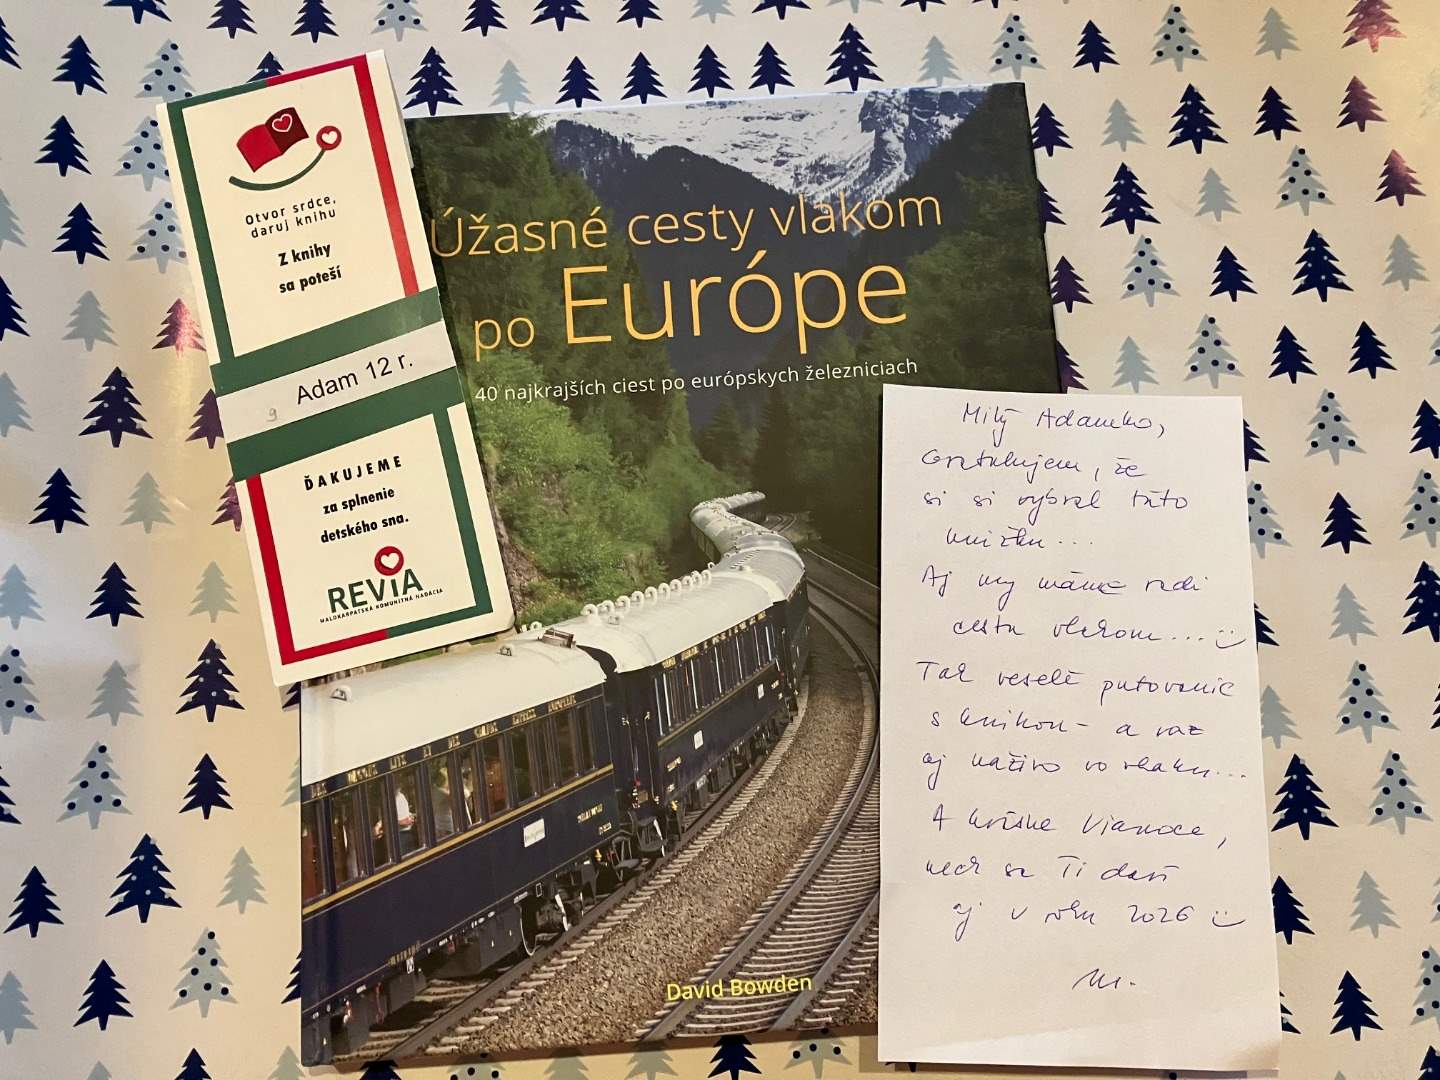 Otvor srdce,
daruj knihu
Z knihy
sa poteší
9 Adam 12 r.
ĎAKUJEME
za splnenie
detského sna.
REVIA
MALOKARPATSKÁ KOMUNITNÁ NADÁCIA
Úžasné cesty vlakom
po Európe
40 najkrajších ciest po európskych železniciach
David Bowden
Milý Adamko,
Gratulujem, že
si si vybral túto
knižku...
Aj my máme radi
cestu vlakom...
Tak veselé putovanie
s knihou - a raz
aj naživo vo vlaku...
A krásne Vianoce,
nech sa Ti darí
aj v roku 2026
M.